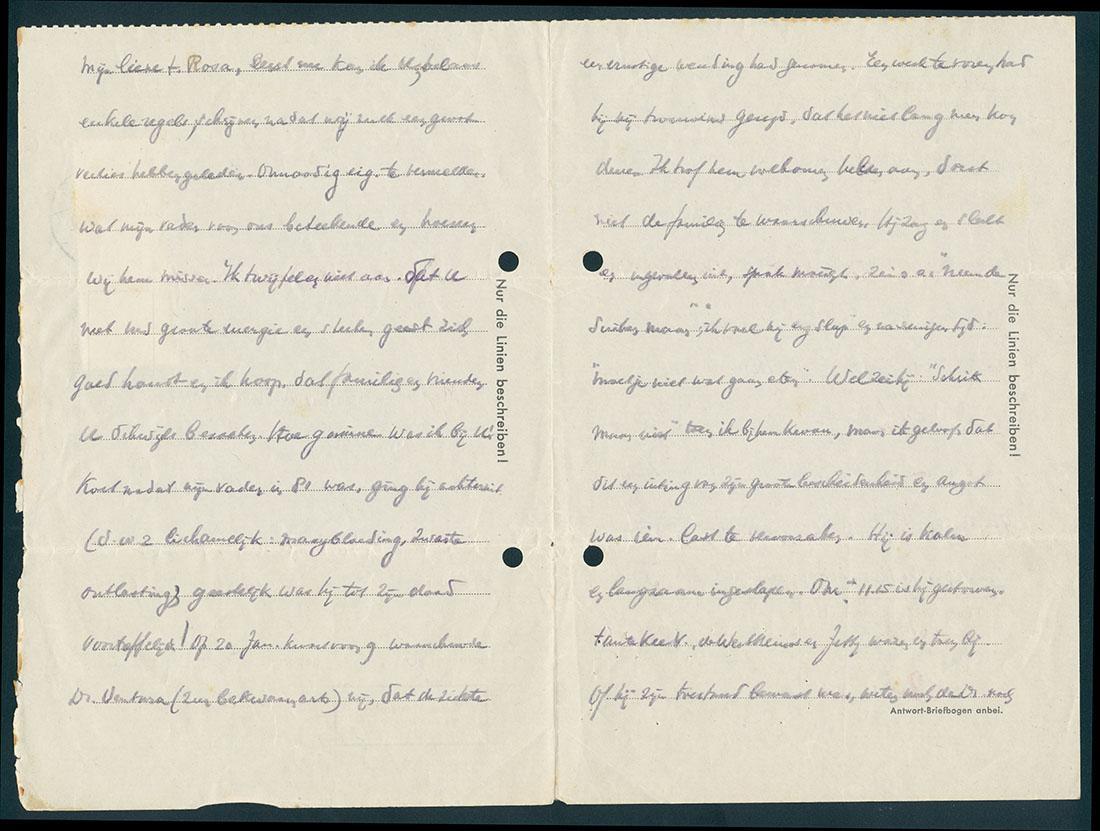 Mijn lieve t. Rosa, eerst nu kan ik U
enkele regels schrijven nadat wij zulk een groot
verlies hebben geleden. Onnoodig eig. te vermelden,
wat mijn vader voor ons beteekende en hoezeer
wij hem missen. Ik twijfel er niet aan. dat U
met Uw groote energie en sterken geest zich
goed houdt en ik hoop, dat familie en vrienden
U dikwijls bezoeken. Hoe gaarne was ik bij U!
Kort nadat mijn vader in 81 was, ging hij achteruit
(d.w.z lichamelijk: maagbloeding, zwaste
ontlasting) geestelijk was hij tot zijn dood
voortreffelijk! Op 20 Jan. kwart voor 9 waarschuwde
Dr. Ventura (een bekwaam arts) mij, dat de ziekte
een ernstige wending had genomen. Een week te voren had
hij mij gezegd, dat het niet lang meer kon
duren. Ik trof hem volkomen helder aan, doch
niet de familie te waarschuwen. Hij zag er slecht
en ingevallen uit, sprak moeilijk,
maar", "ik voel mij erg slap" en na eenigen tijd:
"moet je niet wat gaan eten". Wel zei hij: "Schrik
maar niet" toen ik bij hem kwam, maar ik geloof dat
dit een uiting van zijn groote bescheidenheid en angst
was iem. last te veroorzaken. Hij is kalm
en langzaam ingeslapen. Om 11.15 is hij gestorven.
tante Keetj., dr Westheimer en Jetty waren er toen bij.
Of hij zijn toestand bewust was, weten noch de Dr noch
Nur die Linien beschreiben!
Nur die Linien beschreiben!
Antwort-Briefbogen anbei.